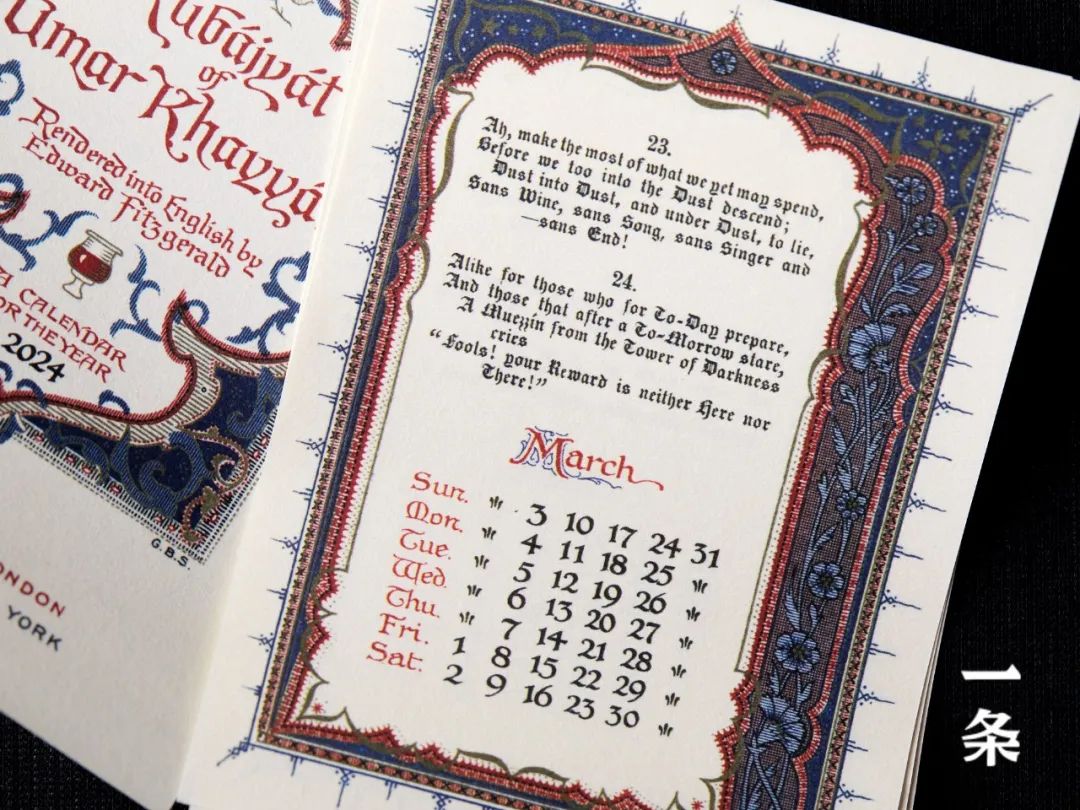 Rubáiyát
of
Omar Khayyá
Rendered into English by
Edward Fitzgerald
A CALENDAR
FOR THE YEAR
2024
G.B.S.
LONDON
YORK
23.
Ah, make the most of what we yet may spend,
Before we too into the Dust descend;
Dust into Dust, and under Dust, to lie,
Sans Wine, sans Song, sans Singer and
—sans End!
24.
Alike for those who for To-Day prepare,
And those that after a To-Morrow stare,
A Muezzín from the Tower of Darkness
cries
“Fools! your Reward is neither Here nor
There!”
March
Sun. 3 10 17 24 31
Mon. 4 11 18 25
Tue. 5 12 19 26
Wed. 6 13 20 27
Thu. 7 14 21 28
Fri. 1 8 15 22 29
Sat. 2 9 16 23 30
一条